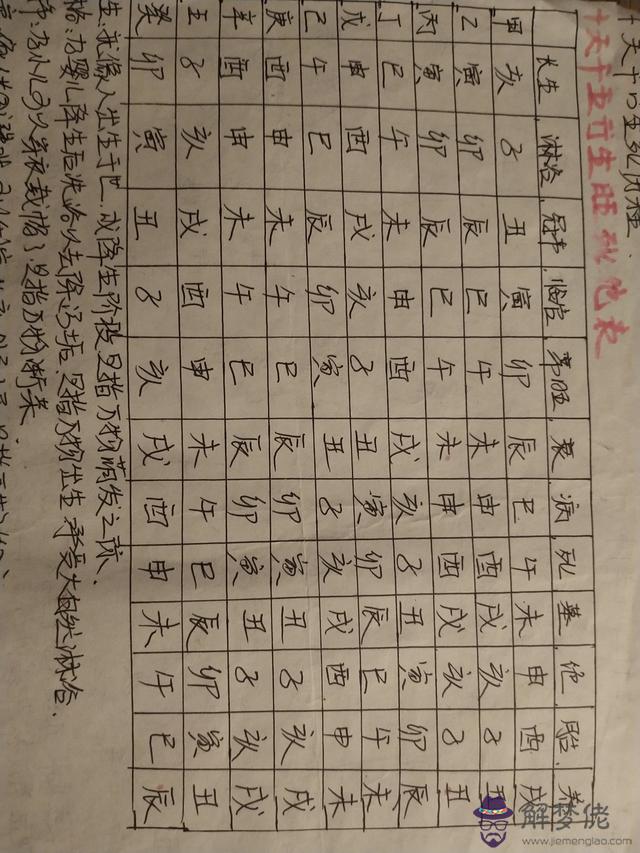 十天干的生死历程
十天干五行生旺死绝表
长生 淋浴 冠带 临官 帝旺 衰 病 死 墓 绝 胎 养
甲 亥 子 丑 寅 卯 辰 巳 午 未 申 酉 戌
乙 寅 卯 辰 巳 午 未 申 酉 戌 亥 子 丑
丙 寅 卯 辰 巳 午 未 申 酉 戌 亥 子 丑
丁 巳 午 未 申 酉 戌 亥 子 丑 寅 卯 辰
戊 申 酉 戌 亥 子 丑 寅 卯 辰 巳 午 未
己 午 巳 辰 卯 寅 丑 子 亥 戌 酉 申 未
庚 酉 申 未 午 巳 辰 卯 寅 丑 子 亥 戌
辛 酉 申 未 午 巳 辰 卯 寅 丑 子 亥 戌
壬 子 亥 戌 酉 申 未 午 巳 辰 卯 寅 丑
癸 卯 寅 丑 子 亥 戌 酉 申 未 午 巳 辰
生:就像人出生于世,或降生阶段是指万物萌发之际.
浴:为婴儿降生后洗浴以去除污垢.是指万物出生 承受大自然淋浴.
为小儿可以穿衣戴帽了,是指万物渐荣
解梦佬
www.jiemenglao.com